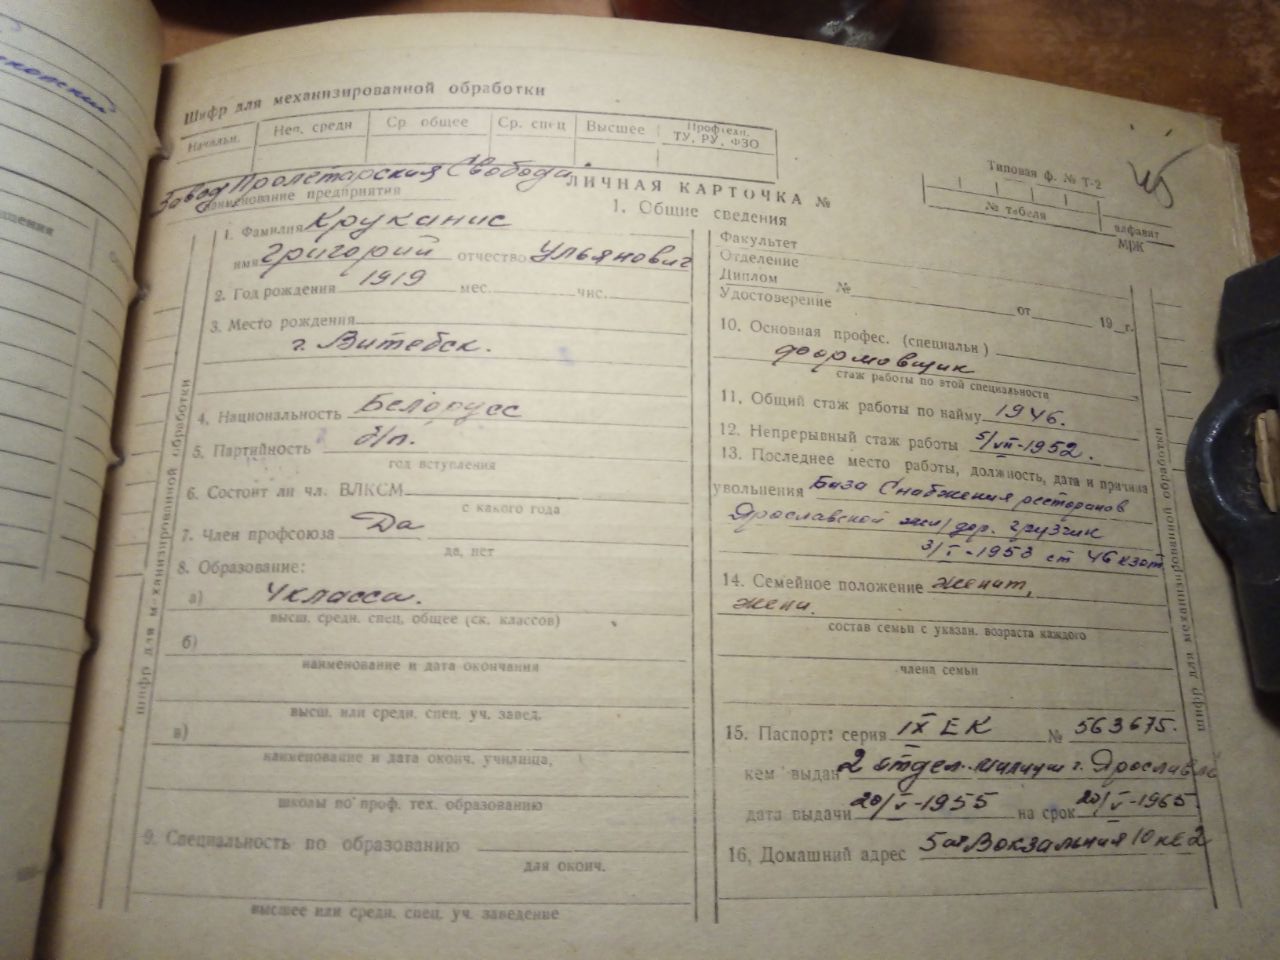 Шифр для механизированной обработки
Начальн. Неп. средн Ср общее Ср. спец Высшее Профтехн. ТУ, РУ, ФЗО
Типовая ф. № Т-2
№ табеля алфавит
М/Ж
Завод Пролетарския Свобода
наименование предприятия
ЛИЧНАЯ КАРТОЧКА №
1. Общие сведения
1. Фамилия Круканис
имя Григорий отчество Ульянович
2. Год рождения 1919 мес. чис.
3. Место рождения
г. Витебск.
4. Национальность Белорусс
5. Партийность б/п.
год вступления
6. Состоит ли чл. ВЛКСМ
с какого года
7. Член профсоюза Да
да, нет
8. Образование:
а) 4 класса.
высш. средн. спец. общее (ск. классов)
б)
наименование и дата окончания
высш. или средн. спец. уч. завед.
в)
наименование и дата оконч. училища,
школы по проф. тех. образованию
9. Специальность по образованию
для оконч.
высшее или средн. спец. уч. заведение
Факультет
Отделение
Диплом №
Удостоверение от 19 г.
10. Основная профес. (специальн)
формовщик
стаж работы по этой специальности
11. Общий стаж работы по найму 1946.
12. Непрерывный стаж работы 5/VII-1952.
13. Последнее место работы, должность, дата и причина
увольнения База Снабжения ресторанов
Ярославской жел/дор. грузчик
3/I-1953 ст 46 кзот
14. Семейное положение женат,
жена.
состав семьи с указан. возраста каждого
члена семьи
15. Паспорт: серия IX ЕК № 563675.
кем выдан 2 отдел. милиции г. Ярославля
дата выдачи 20/V-1955 на срок 20/V-1965.
16, Домашний адрес 5 ая Вокзальная 10 кв 2
Шифр для механизированной обработки
Шифр для механизированной обработки